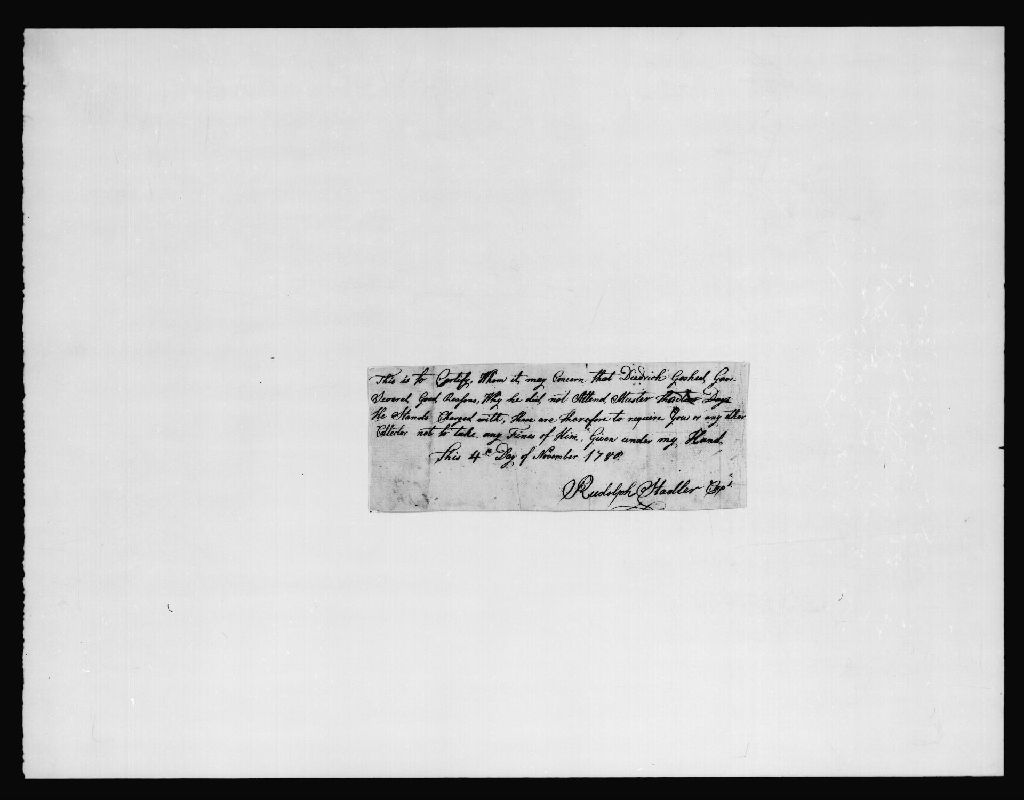 This is to Certify, Whom it may Concern that Diedrick Gave
Several Good Reasons, Why he did not Attend Muster Days
He Stands Charged with, these are therefore to require You or any other
Collector not to take any Fines of Him. Given under my Hand
This 4th Day of November 1780.
Rudolph Stadler Capt.